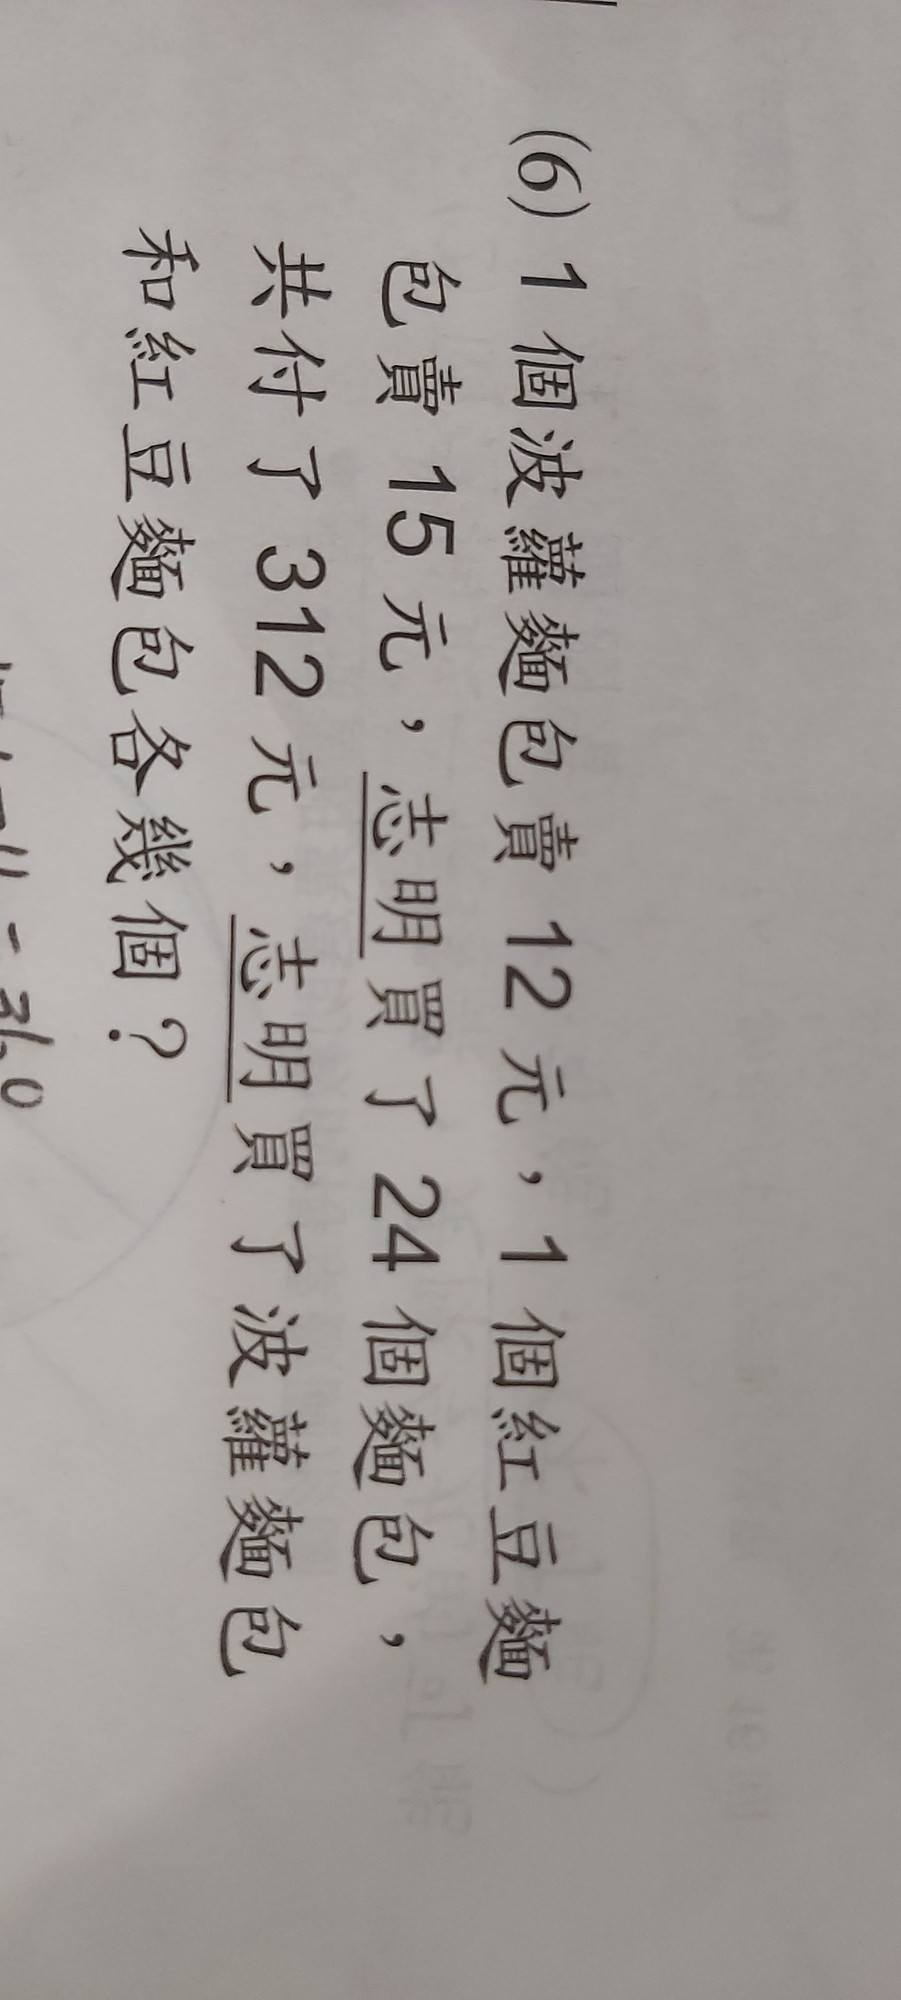 (6) 1 個波蘿麵包賣 12 元，1 個紅豆麵
包賣 15 元，志明買了 24 個麵包，
共付了 312 元，志明買了波蘿麵包
和紅豆麵包各幾個？